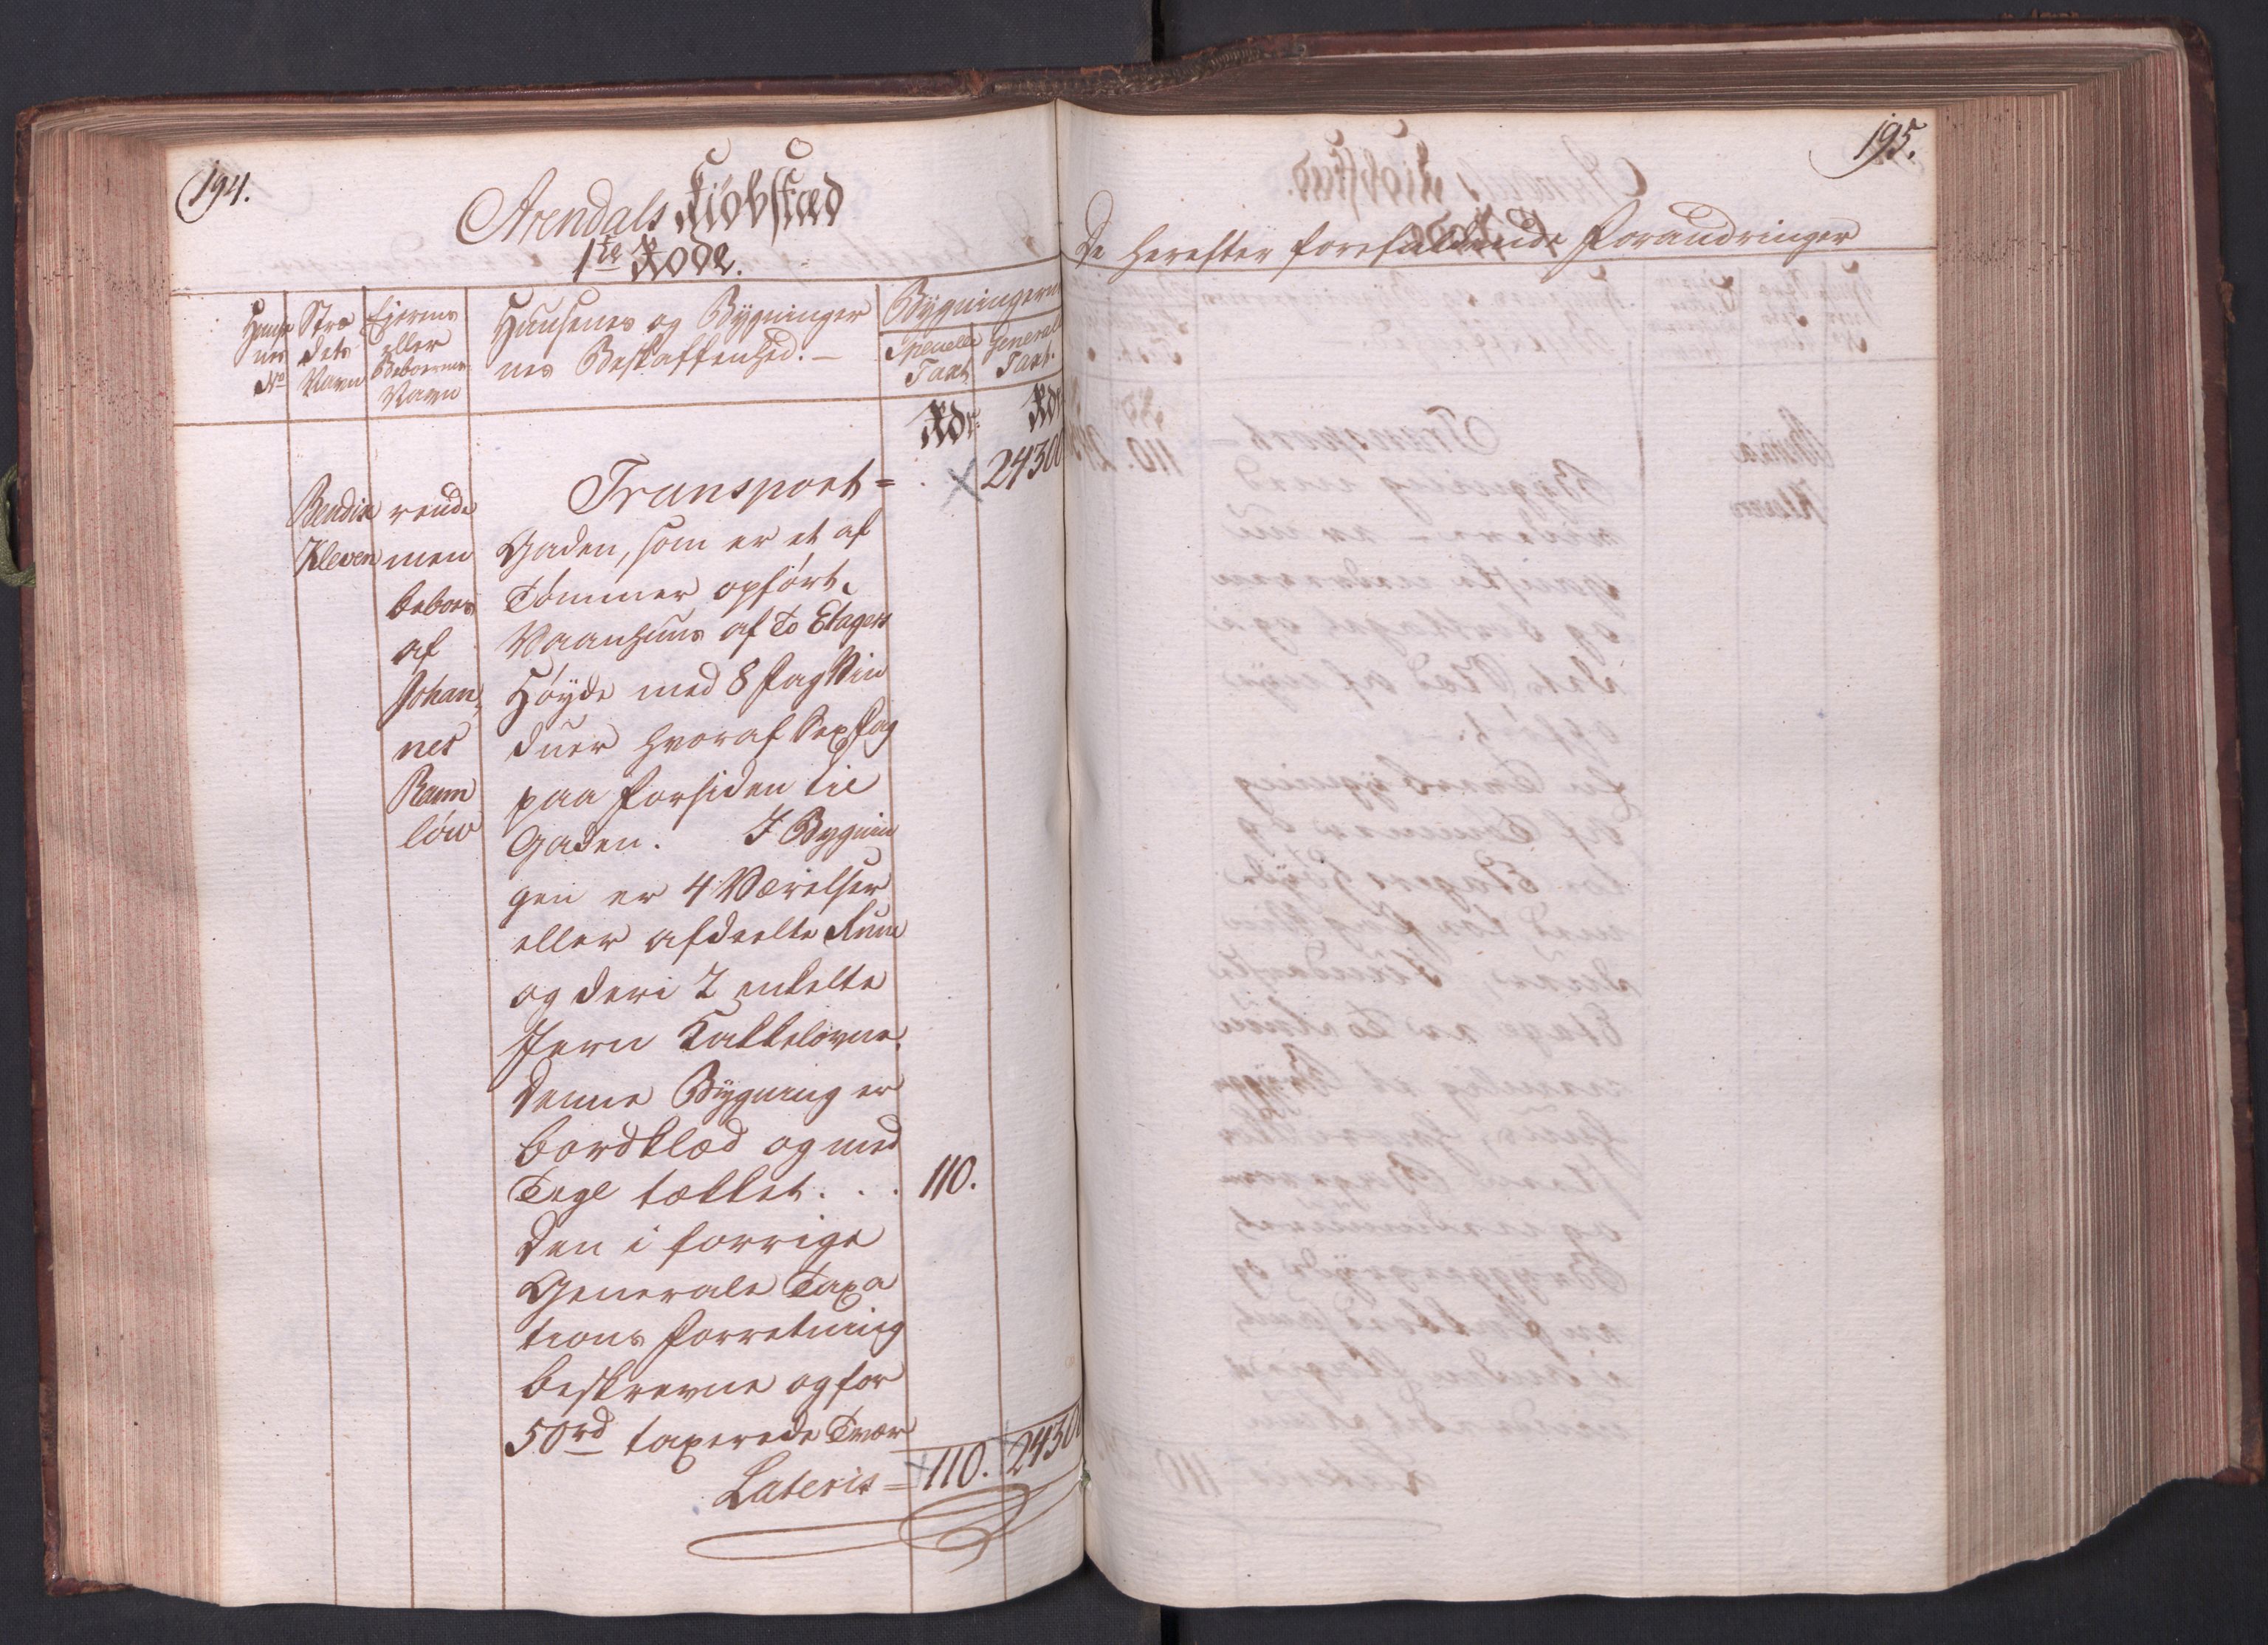 194.
Arendals Kiøbstæd
1ste Rode.
Husenes No
Strædets Navn
Ejerens eller Beboerens Navn
Huusenes og Bygninger
nes Beskaffenhed. –
Bygningern
Specielle Taxt
Generale Taxt.
Rdr.
Rdr
Transport = . 24300
Bendix
Kleven
rende
men
beboes
af
Johan„
nes
Ramm
löw
Gaden, som er et af
Tømmer opført
Vaanhuus af to Etagers
Høyde med 8 Fag Vin
duer hvoraf Sex Fag
paa Forsiden til
Gaden. I Bygnin
gen er 4 Værelser
eller afdeelte Rum
og deri 2 enkelte
Jern Kakkelovne.
Denne Bygning er
bordklæd og med
Tegl tækket. . . 110.
Den i forrige
Generale Taxa
tions Forretning
beskrevne og for
50rd taxerede Tvær
Lateris = 110. 24300
195.
De herefter forefaldende Forandringer